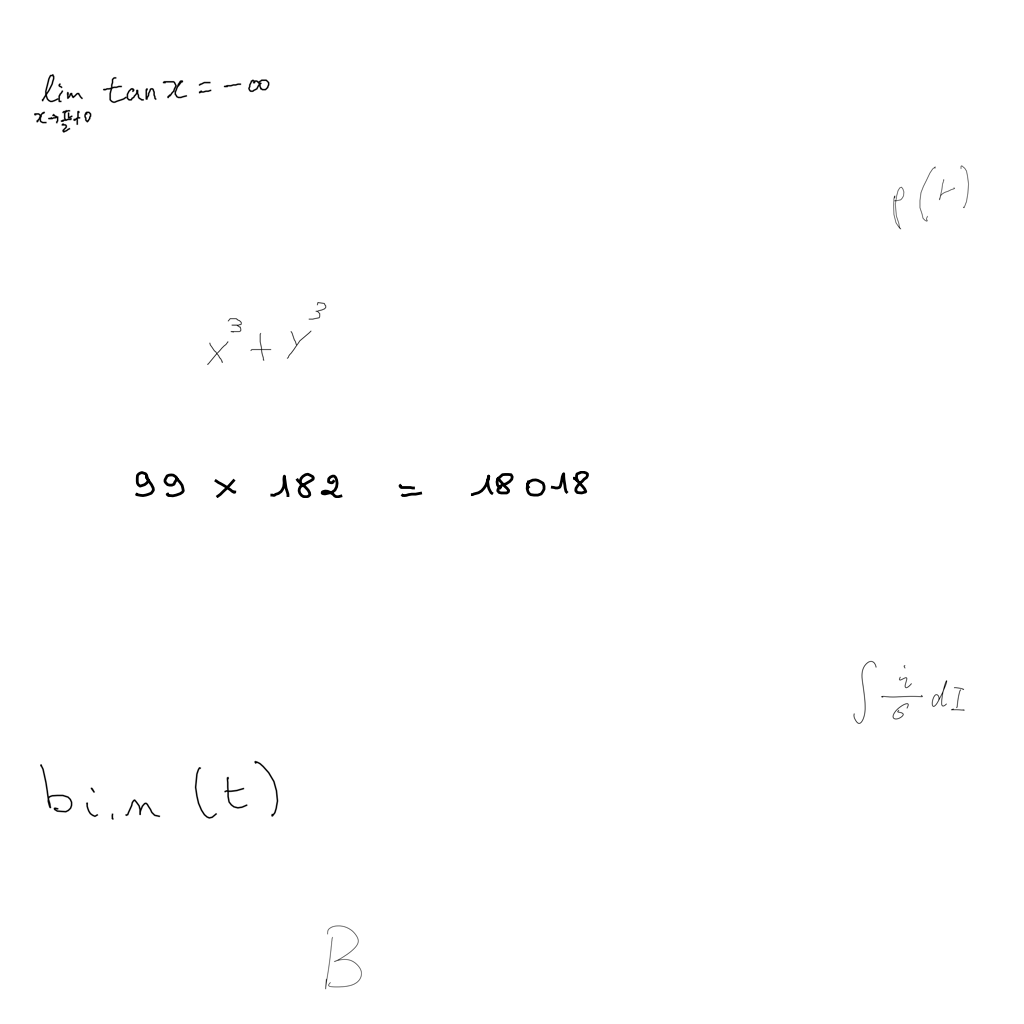 lim_{x→π/2+0} tan x = -∞
p(t)
x³ + y³
99 × 182 = 18018
∫ i/6 dI
b i,n (t)
B